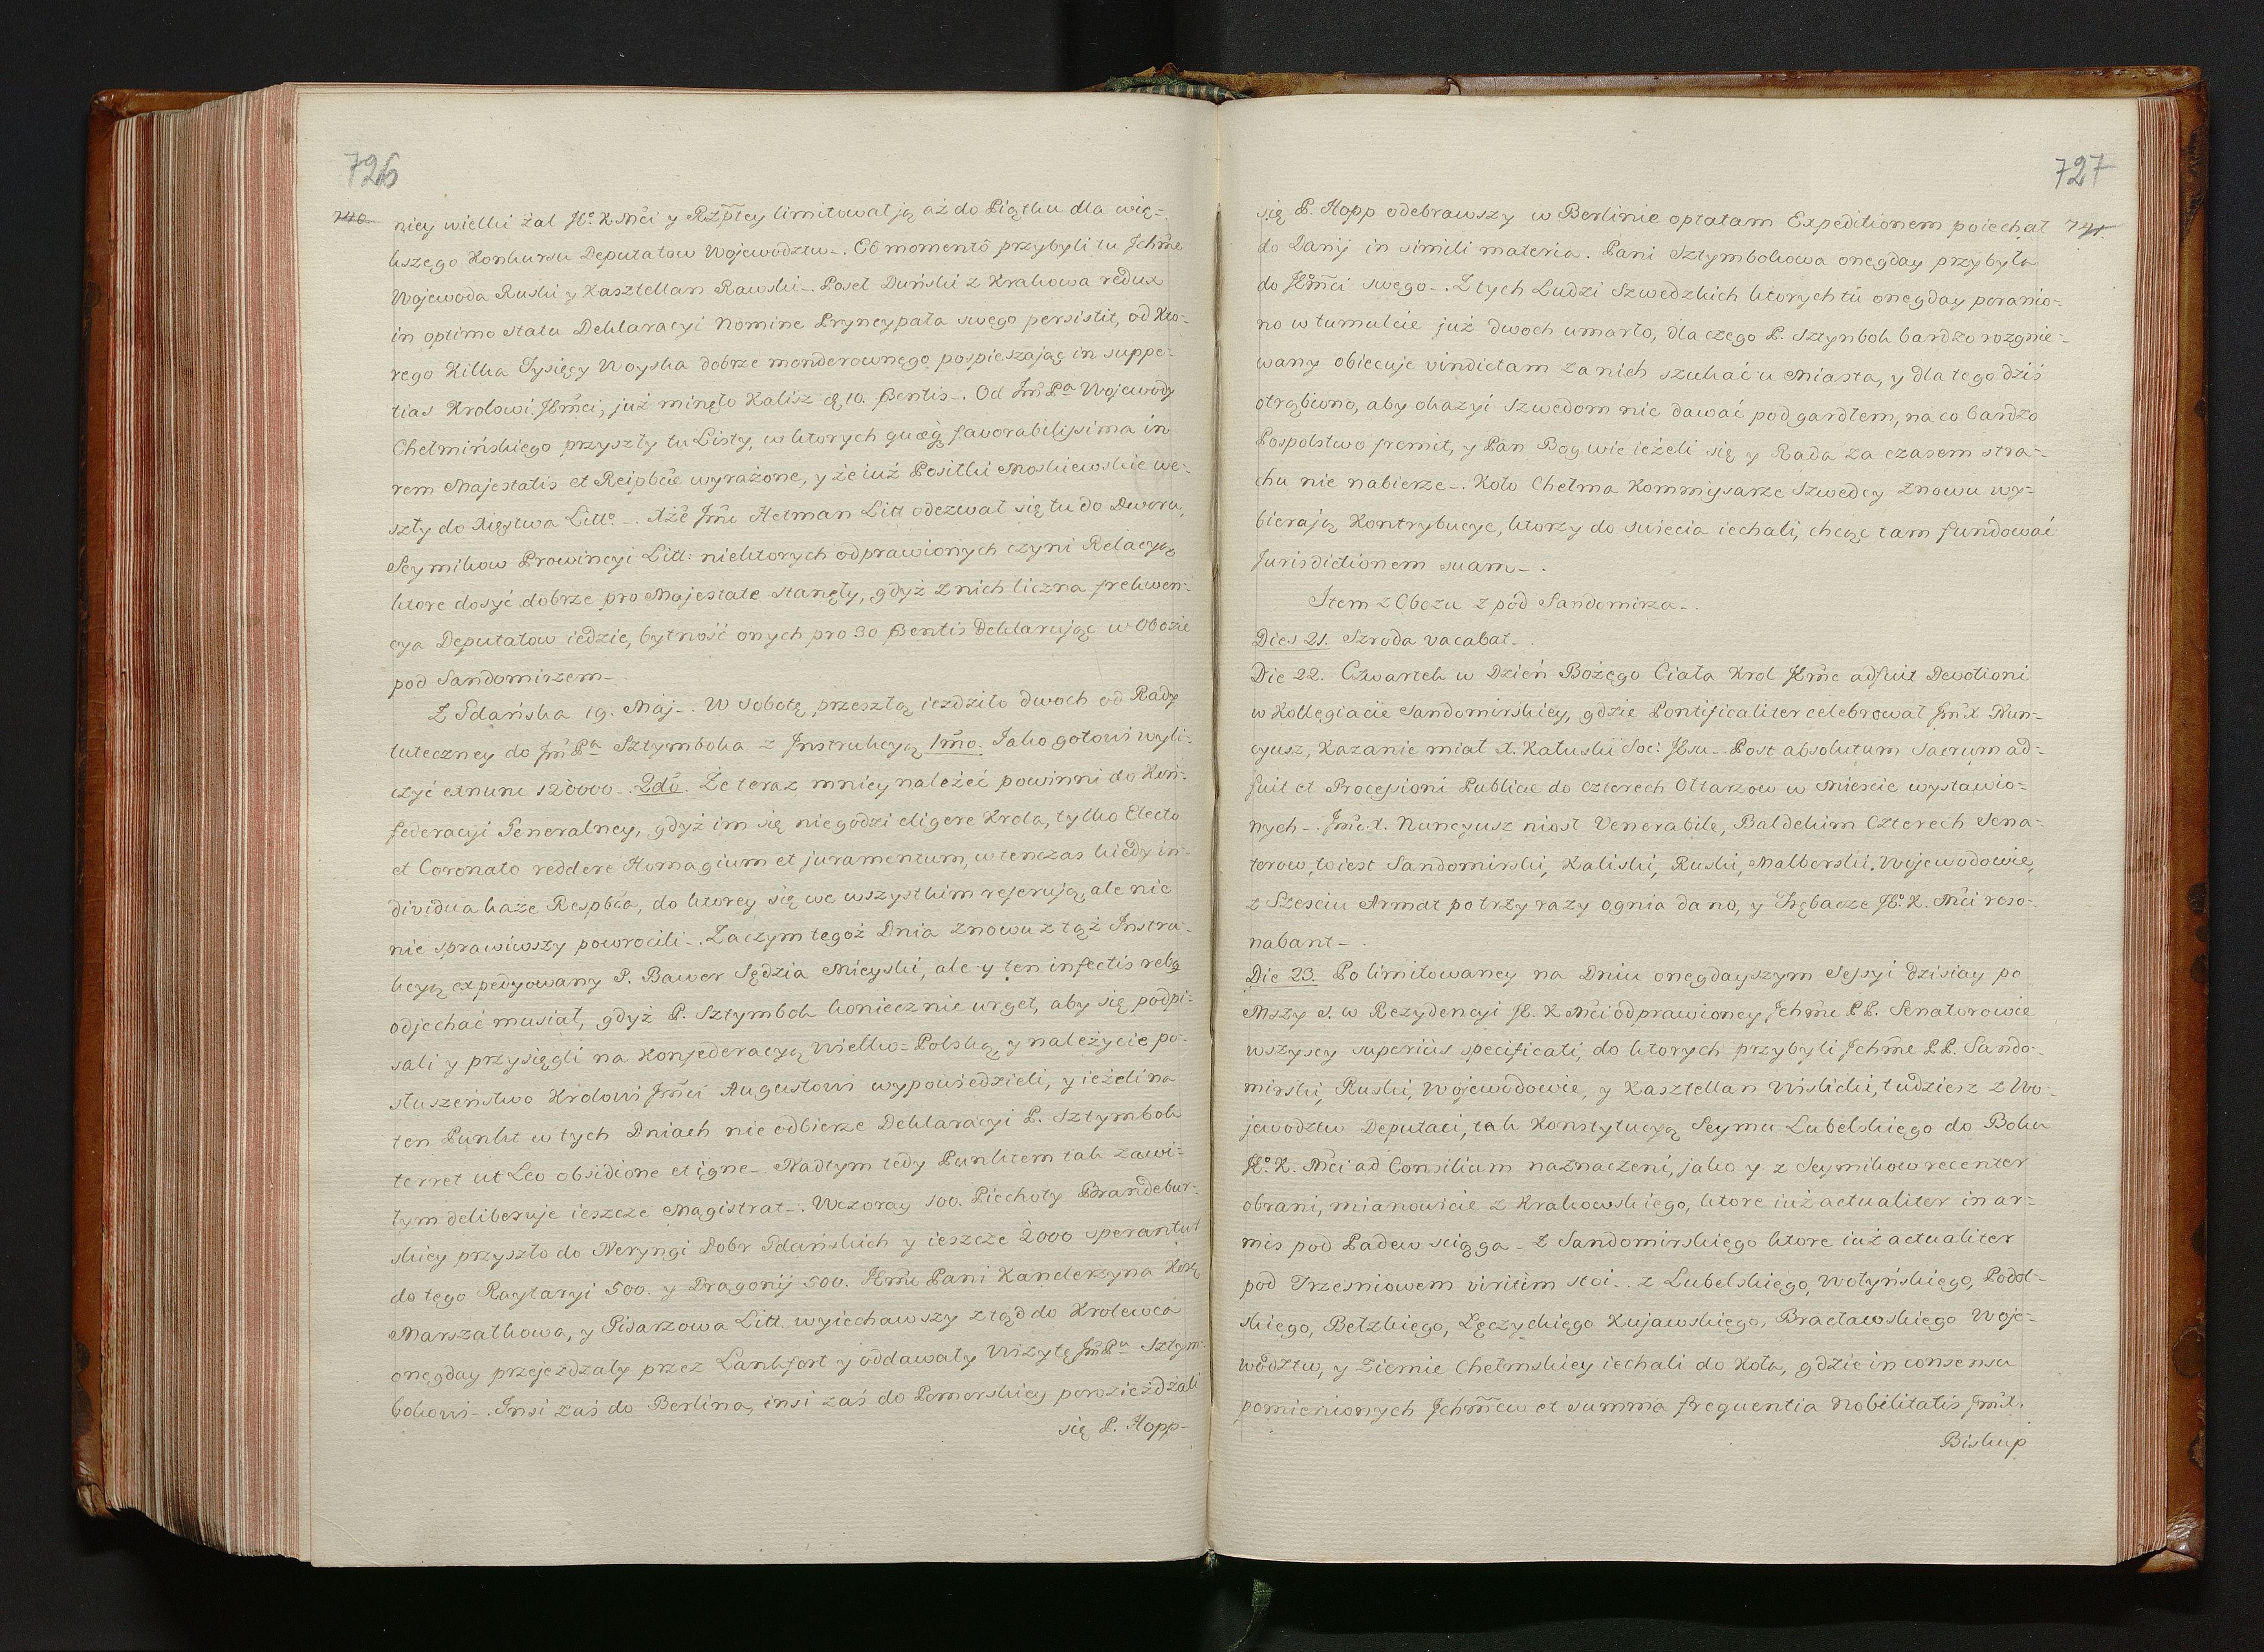 726
740.
niey wielki żal JKo. K Mći y Rzptey limitował ją aż do Piątku dla wię-
kszego Konkursu Deputatow Wojewodztw-. Eô momentô przybyli tu Jchm̃e
Wojewoda Ruski y Kasztellan Rawski-. Poseł Duński z Krakowa redux
in optimo statu Deklaracyi Nomine Pryncypała swego persistit, od Kto-
rego Kilka Tysięcy Woyska dobrze monderownęgo pospieszając in suppe-
tias Krolowi Jm̃ci, już minęło Kalisz 10. Bentis-. Od Jm̃Pa Wojewody
Chełmińskiego przyszły tu Listy, w ktorych quæq favorabilissima in
rem Majestatis et Reipbćæ wyrażone, y że iuż Positki Moskiewskie we-
szły do Xięstwa Litto-. Xże Jm̃c Hetman Litt odezwał się tu do Dworu,
Seymikow Prowincyi Litt: niektorych odprawionych czyni Relacyą
ktore dosyć dobrze pro Majestate stanęły, gdyż z nich liczna frekwen-
cya Deputatow iedzie, bytność onych pro 30 Bentis Deklarując w Obozie
pod Sandomirzem-
Z Gdańska 19. Maj-. W sobotę przeszłą iezdziło dwoch od Rady
tuteczney do Jm̃Pa Sztymboka z Instrukcyą 1mo. Jako gotowi wyli-
czyć exnunc 120000-. 2do. Że teraz mniey należeć powinni do Kon-
federacyi Generalney, gdyż im się niegodzi eligere Krola, tylko Electo
et Coronato reddere Homagium et juramentum, wtenczas kiedy in-
dividua każe Respbća, do ktorey się we wszystkim referują, ale nic
nie sprawiwszy powrocili-. Zaczym tegoż Dnia znowu z tąż Instru-
kcyą expedyowany P. Bawer Sędzia Mieyski, ale y ten infectis rebq
odjechać musiał, gdyż P. Sztymbok koniecznie urget, aby się podpi-
sali y przysięgli na Konfederacyą Wielko-Polską, y należycie po-
słuszeństwo Krolowi Jm̃ci Augustowi wypowiedzieli, y ieżeli na
ten Punkt w tych Dniach nie odbierze Deklaracyi P. Sztymbok
terret ut Leo obsidione et igne-. Nadtym tedy Punktem tak zawi-
łym deliberuje ieszcze Magistrat-. Wczoray 100. Piechoty Brandebur-
skiey przyszło do Neryngi Dobr Gdańskich y ieszcze 2000 sperantur
do tego Raytaryi 500. y Dragonij 500. Jm̃c Pani Kanclerzyna Kor.
Marszałkowa, y Pisarzowa Litt. wyiechawszy ztąd do Krolewca
onęgday przejeżdzały przez Lankfort y oddawały Wizytę Jm̃Pu Sztym-
bokowi-. Insi zaś do Berlina, insi zaś do Pomorskiey porozieżdżali
się P. Hopp-
727
741.
się P. Hopp odebrawszy w Berlinie optatam Expeditionem poiechał
do Danij in simili materia. Pani Sztymbokowa onegday przybyła
do Jm̃ci swego-. Z tych Ludzi Szwedzkich ktorych tu onegday poranio-
no w tumulcie już dwoch umarło, dla czego P. Sztynbok bardzo rozgnie-
wany obiecuje vindictam za nich szukać u Miasta, y dla tego dziś
otrąbiono, aby okazyi Szwedom nie dawać pod gardłem, na co bardzo
Pospolstwo fremit, y Pan Bog wie ieżeli się y Rada za czasem stra-
chu nie nabierze-. Koło Chełma Kommisarze Szwedcy znowu wy-
bierają Kontrybucye, ktorzy do Swiecia iechali, chcąc tam fundować
Jurisdictionem suam-.
Item z Obozu z pod Sandomirza-.
Dies 21. Szroda vacabat-.
Die 22. Czwartek w Dzień Bożęgo Ciała Krol Jm̃c adfuit Devotioni
w Kollęgiacie Sandomirskiey, gdzie Pontificaliter celebrował Jm̃X Nun-
cyusz, Kazanie miał X. Kałuski Soc: Jesu-. Post absolutum Sacrum ad-
fuit et Processioni Publicæ do czterech Ołtarzow w Miescie wystawio-
nych-. Jm̃c.X. Nuncyusz niosł Venerabile, Baldekim Czterech Sena-
torow, toiest Sandomirski, Kaliski, Ruski, Malborski, Wojewodowie,
z Szesciu Armat po trzy razy ognia dano, y Trębacze Jo. K. Mći reso-
nabant-.
Die 23. Po limitowaney na Dniu onegdayszym Sessyi dzisiay po
Mszy S. w Rezydencyi J. K Mći odprawioney Jchm̃c PP. Senatorowie
wszyscy superiùs specificati, do ktorych przybyli Jchm̃c P.P. Sando-
mirski, Ruski, Wojewodowie, y Kasztellan Wislicki, tudziesz z Wo-
jewodztw Deputaci, tak Konstytucyą Seymu Lubelskiego do Boku
Jo. K. Mći ad Consilium naznaczeni, jako y z Seymikow recenter
obrani, mianowicie z Krakowskiego, ktore iuż actualiter in ar-
mis pod Padew sciąga-. Z Sandomirskiego ktore iuż actualiter
pod Trzesniowem viritim stoi-. z Lubelskiego, Wołyńskiego, Podol-
skiego, Bełzkiego, Łęczyckięgo Kujawskiego, Bracławskiego Woje-
wodztw, y Ziemie Chełmskiey iechali do Koła, gdzie in consensu
pomienionych Jchm̃ciow et summa frequentia Nobilitatis Jm̃X.
Biskup